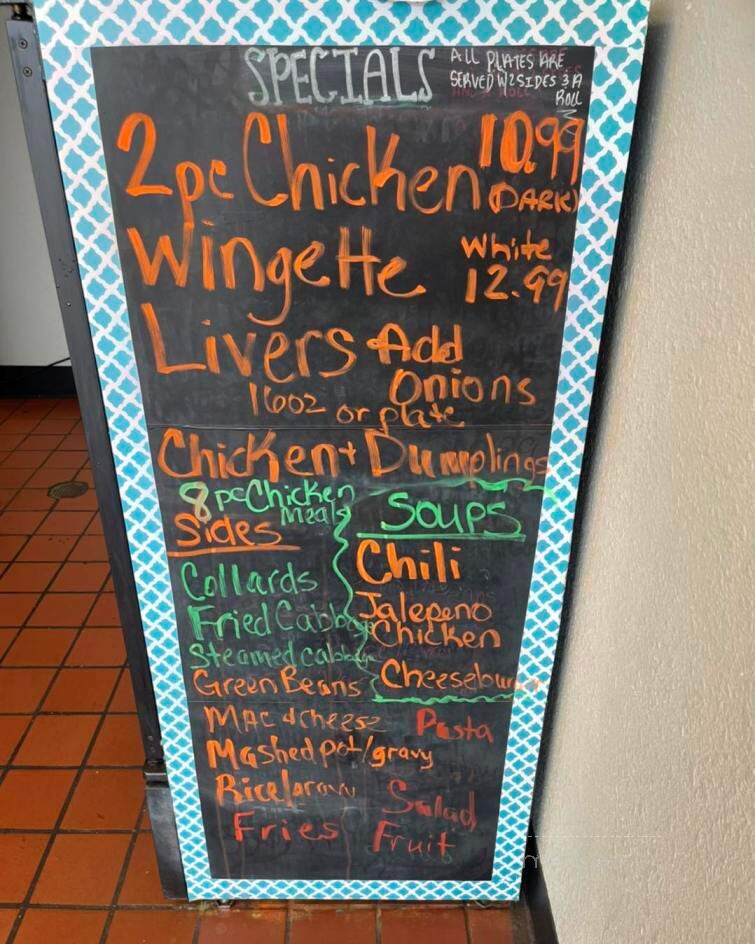 SPECIALS
ALL PLATES ARE
SERVED W 2 SIDES & A
ROLL
2pc Chicken 10.99
(DARK)
Wingette White
12.99
Livers Add
Onions
16oz or plate
Chicken + Dumplings
8 pc Chicken
Meals
Sides
Collards
Fried Cabbage
Steamed cabbage
Green Beans
SOUPS
Chili
Jalepeno
Chicken
Cheeseburger
MAC & cheese Pasta
Mashed pot/gravy
Rice/gravy Salad
Fries Fruit